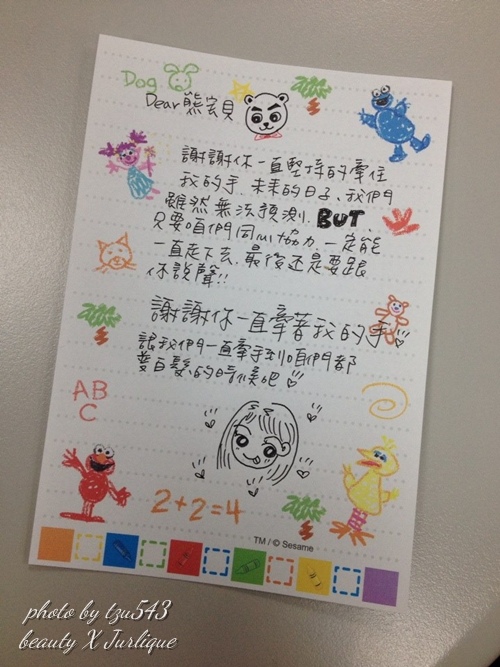 Dog
Dear 熊宝貝
謝謝你一直堅持的牽住
我的手.未來的日子、我們
雖然無法預測. BUT.
只要咱們同心協力.一定能
一直走下去.最後還是要跟
你說聲!!
謝謝你一直牽著我的手
讓我們一直牽手到咱們都
變白髮的時候吧
AB
C
2+2=4
TM / © Sesame
photo by tzu543
beauty X Jurlique